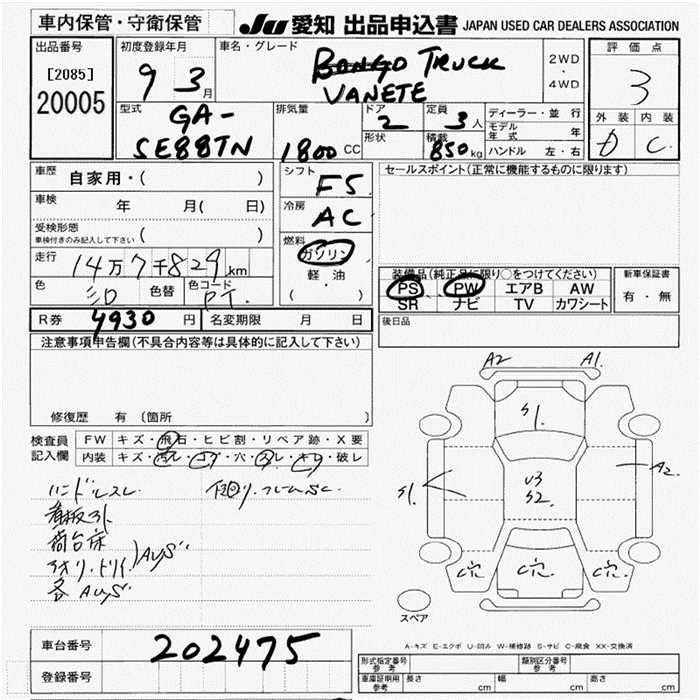 車内保管・守衛保管
JU 愛知 出品申込書 JAPAN USED CAR DEALERS ASSOCIATION
出品番号
[2085]
20005
初度登録年月
9 3月
車名・グレード
BONGO TRUCK
VANETE
2WD
・
4WD
評価点
3
外装 内装
D C
型式
GA-
SE88TN
排気量
1800 CC
ドア
2
形状
定員
3人
積載
850kg
ディーラー・並行
モデル年式 年
ハンドル 左・右
車歴 自家用・( )
車検 年 月( 日)
受検形態
車検付きのみ記入して下さい ( )
走行 14万7千829km
色 シロ 色替 色コード PT.
シフト
F5
冷房
AC
燃料
ガソリン
軽油
( ・ )
セールスポイント(正常に機能するものに限ります)
装備品(純正品に限り○をつけてください)
PS PW エアB AW
SR ナビ TV カワシート
新車保証書
有・無
後日品
R券 4930円 名変期限 月 日
注意事項申告欄(不具合内容等は具体的に記入して下さい)
修復歴 有 (箇所 )
検査員記入欄
FW キズ・飛石・ヒビ割・リペア跡・X要
内装 キズ・汚レ・コゲ・穴・スレ・キレ・破レ
ハンドルスレ 下回り、フレームSC
看板外
荷台床
アオリ・トリイ AUS
各 AUS
A2 A1
S1
S1 U3 A2
S2
C穴 C穴 C穴
スペア
A-キズ E-エクボ U-凹み W-補修跡 S-サビ C-腐食 XX-交換済
車台番号 202475
登録番号
型式指定番号 参考
類別区分番号 参考
車庫証明用 参考
長さ cm 幅 cm 高さ cm